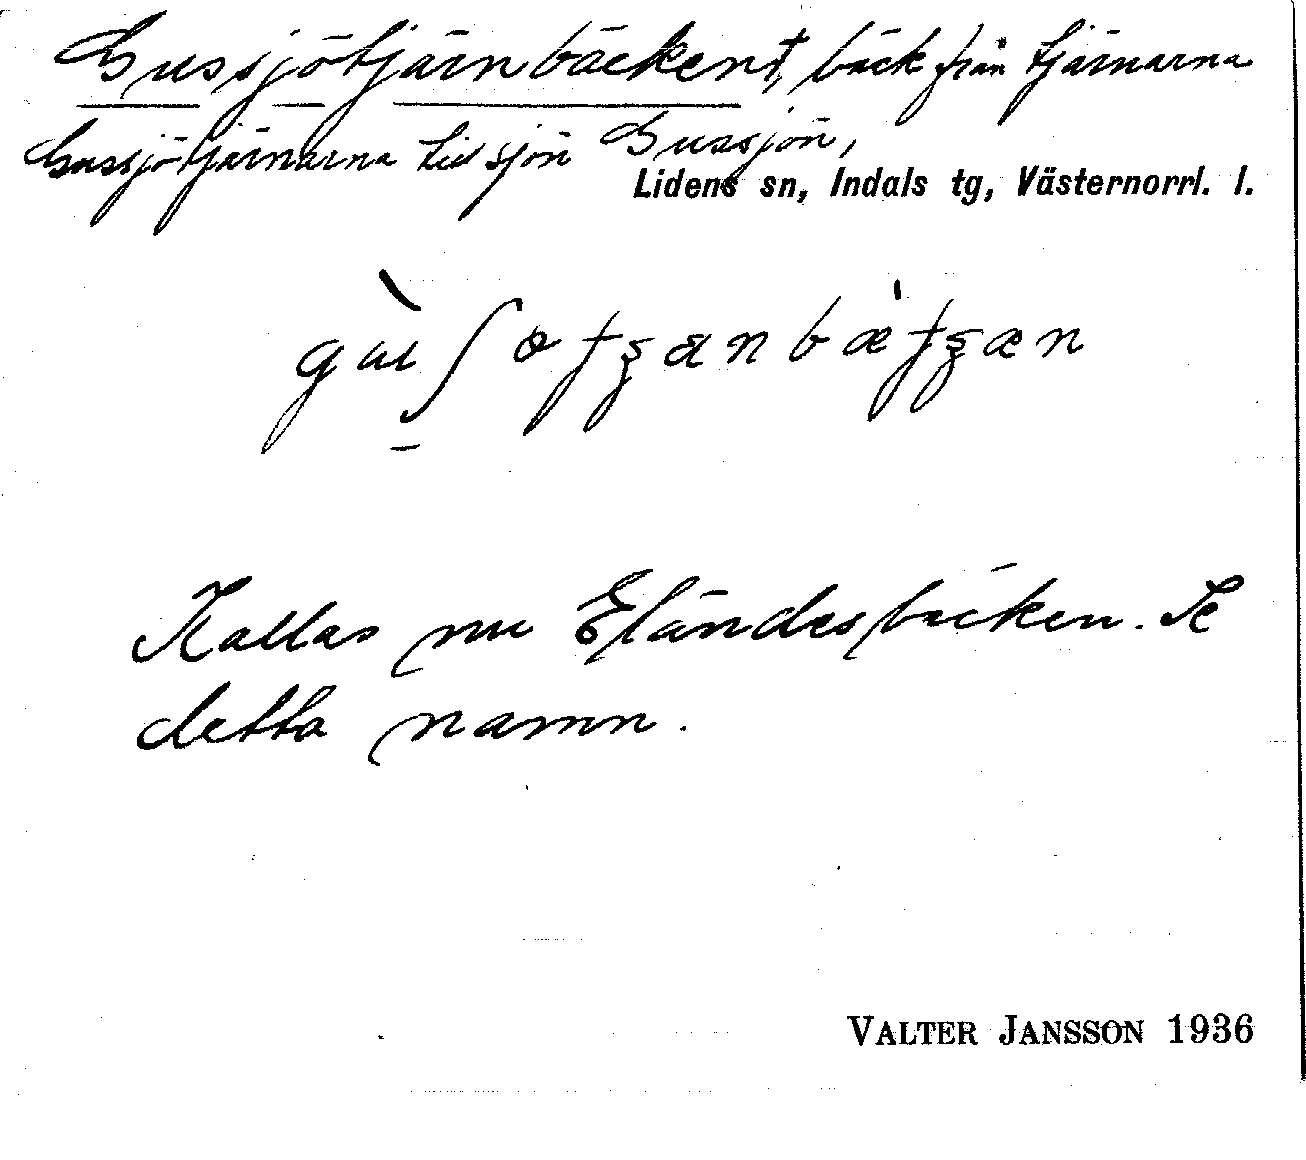 Gussjötjärnbäcken†, bäck från tjärnarna
Gussjötjärnarna till sjön Gussjön,
Lidens sn, Indals tg, Västernorrl. l.
Kallas nu Eländesbäcken. Se
detta namn.
VALTER JANSSON 1936